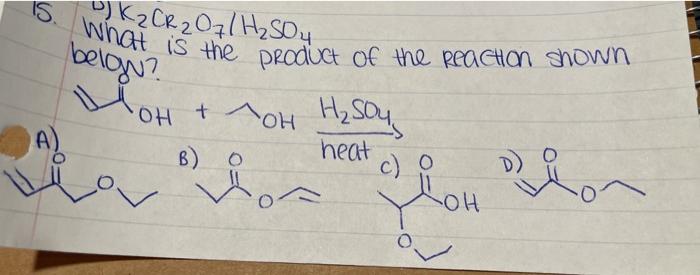 b) K2CR2O7/H2SO4
15. What is the product of the reaction shown
below?
O
OH + OH H2SO4
heat
A) O O
B) O O
C) O OH O
D) O O